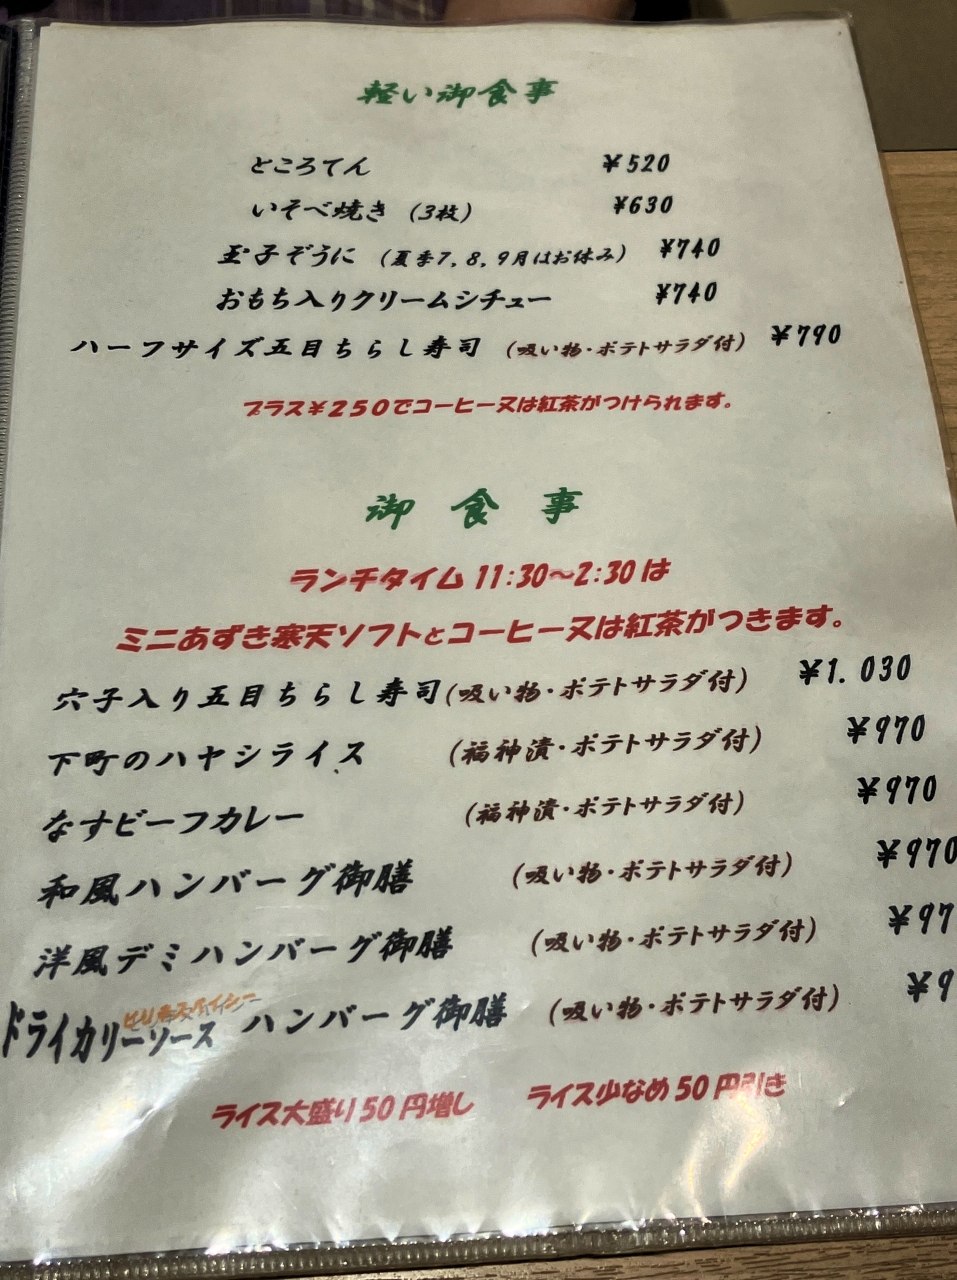 軽い御食事
ところてん ¥520
いそべ焼き (3枚) ¥630
玉子ぞうに (夏季7,8,9月はお休み) ¥740
おもち入りクリームシチュー ¥740
ハーフサイズ五目ちらし寿司 (吸い物・ポテトサラダ付) ¥790
プラス¥250でコーヒー又は紅茶がつけられます。
御食事
ランチタイム 11:30〜2:30は
ミニあずき寒天ソフトとコーヒー又は紅茶がつきます。
穴子入り五目ちらし寿司(吸い物・ポテトサラダ付) ¥1.030
下町のハヤシライス (福神漬・ポテトサラダ付) ¥970
なすビーフカレー (福神漬・ポテトサラダ付) ¥970
和風ハンバーグ御膳 (吸い物・ポテトサラダ付) ¥970
洋風デミハンバーグ御膳 (吸い物・ポテトサラダ付) ¥97
ドライカリーソース ハンバーグ御膳 (吸い物・ポテトサラダ付) ¥9
ライス大盛り50円増し ライス少なめ50円引き